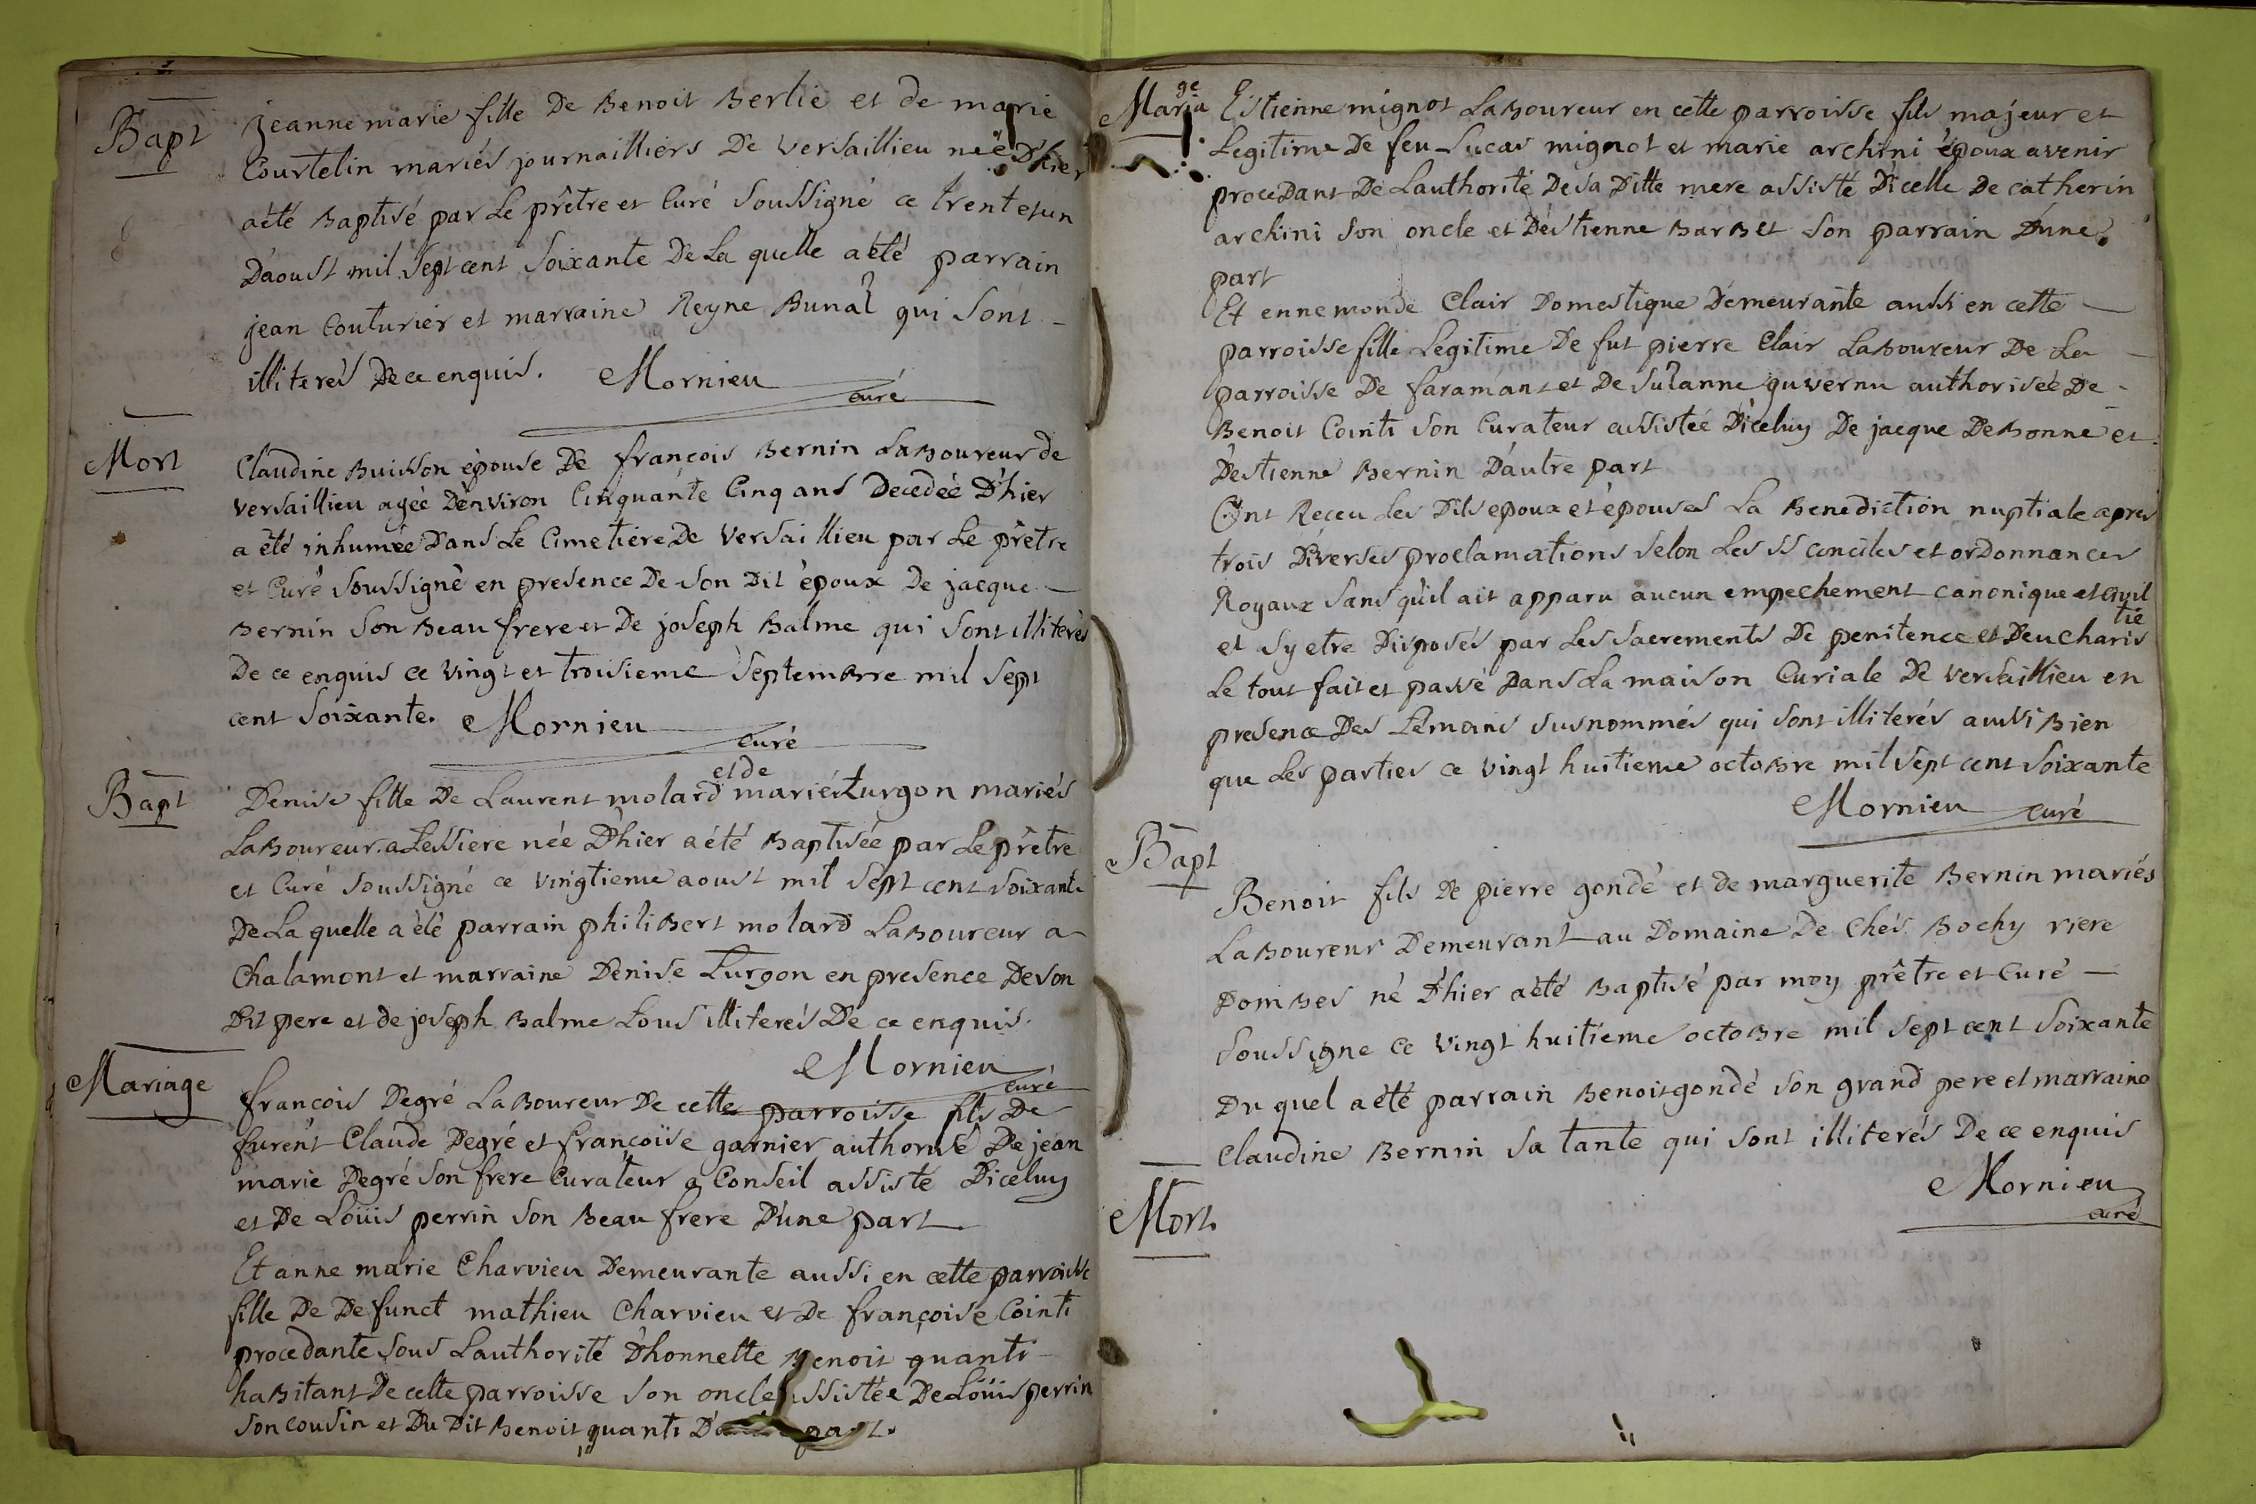 Bapt
jeanne marie fille De Benoit Berlie et de marie
Courtelin mariés journailliers De Versaillieu neé D'hier
aété Baptisé par Le prêtre et Curé Soussigné ce trente et un
D'aoust mil Sept cent Soixante De La quelle aété parrain
jean Couturier et marraine Reyne Bunal qui Sont
illiterés De ce enquis. Mornieu
curé
Mort
Claudine Buisson épouse De françois Bernin LaBoureur de
Versaillieu agée D'environ Cinquante Cinq ans Decedeé D'hier
a été inhumée Dans Le Cimetiere De Versaillieu par Le prêtre
et Curé Soussigné en presence De Son Dit époux De jacque
Bernin Son Beau frere et De joseph Balme qui Sont illiterés
De ce enquis ce Vingt et troisieme SeptemBre mil Sept
cent Soixante. Mornieu
curé
Bapt
et de
Denise fille De Laurent molard mariés turgon mariés
LaBoureur a Lessiere née D'hier aété Baptisée par Le prêtre
et Curé Soussigné ce vingtieme aoust mil Sept cent Soixante
De La quelle a été parrain philiBert molard LaBoureur a
Chalamont et marraine Denise Turgon en presence De son
Dit pere et de joseph Balme tous illiterés De ce enquis.
Mornieu
curé
Mariage
françois Degré LaBoureur De cette parroisse fils De
furent Claude Degré et françoise garnier authorisé De jean
marie Degré Son frere Curateur a Conseil assisté Diceluy
et De Loüis perrin Son Beau frere D'une part
Et anne marie Charvieu Demeurante aussi en cette parroisse
fille De Defunct mathieu Charvieu et De françoise Cointi
procedante Sous Lauthorité D'honnette Benoit quanti
haBitant De cette parroisse Son oncle assistée De Loüis perrin
Son cousin et Du Dit Benoit quanti D'autre part.
ge
Maria
Estienne mignot LaBoureur en cette parroisse fils majeur et
Legitime De feu Lucas mignot et marie archini époux avenir
proceDant De Lauthorité De sa Ditte mere assisté D'icelle De catherin
archini Son oncle et D'estienne BarBet Son parrain D'une
part
Et ennemonde Clair Domestique Demeurante aussi en cette
parroisse fille Legitime De fut pierre Clair LaBoureur De La
parroisse De faramant et De Suzanne guvernu authoriseé De
Benoit Cointi Son Curateur assisteé D'iceluy De jacque DeBonne et
D'estienne Bernin D'autre part
Ont Reçeu Les Dits epoux et épouses La Benediction nuptiale aprés
trois Diverses proclamations Selon Les SS conciles et orDonnances
Royaux Sans qu'il ait apparu aucun empechement canonique et civil
tie
et Sy etre Disposés par Les Sacrements De penitence et D'eucharis
Le tout fait et passé Dans La maison Curiale De Versaillieu en
presence Des Temoins Susnommés qui Sont illiterés aussi Bien
que Les parties ce Vingt huitieme octoBre mil Sept cent Soixante
Mornieu curé
Bapt
Benoit fils De pierre gondé et de marguerite Bernin mariés
LaBoureur Demeurant au Domaine De Chés Bochy riere
DomBes né D'hier aété Baptisé par moy prêtre et Curé
Soussigne ce Vingt huitieme octoBre mil Sept cent Soixante
Du quel aété parrain Benoit gondé Son grand pere et marraine
Claudine Bernin Sa tante qui Sont illiterés De ce enquis
Mornieu
curé
Mort.